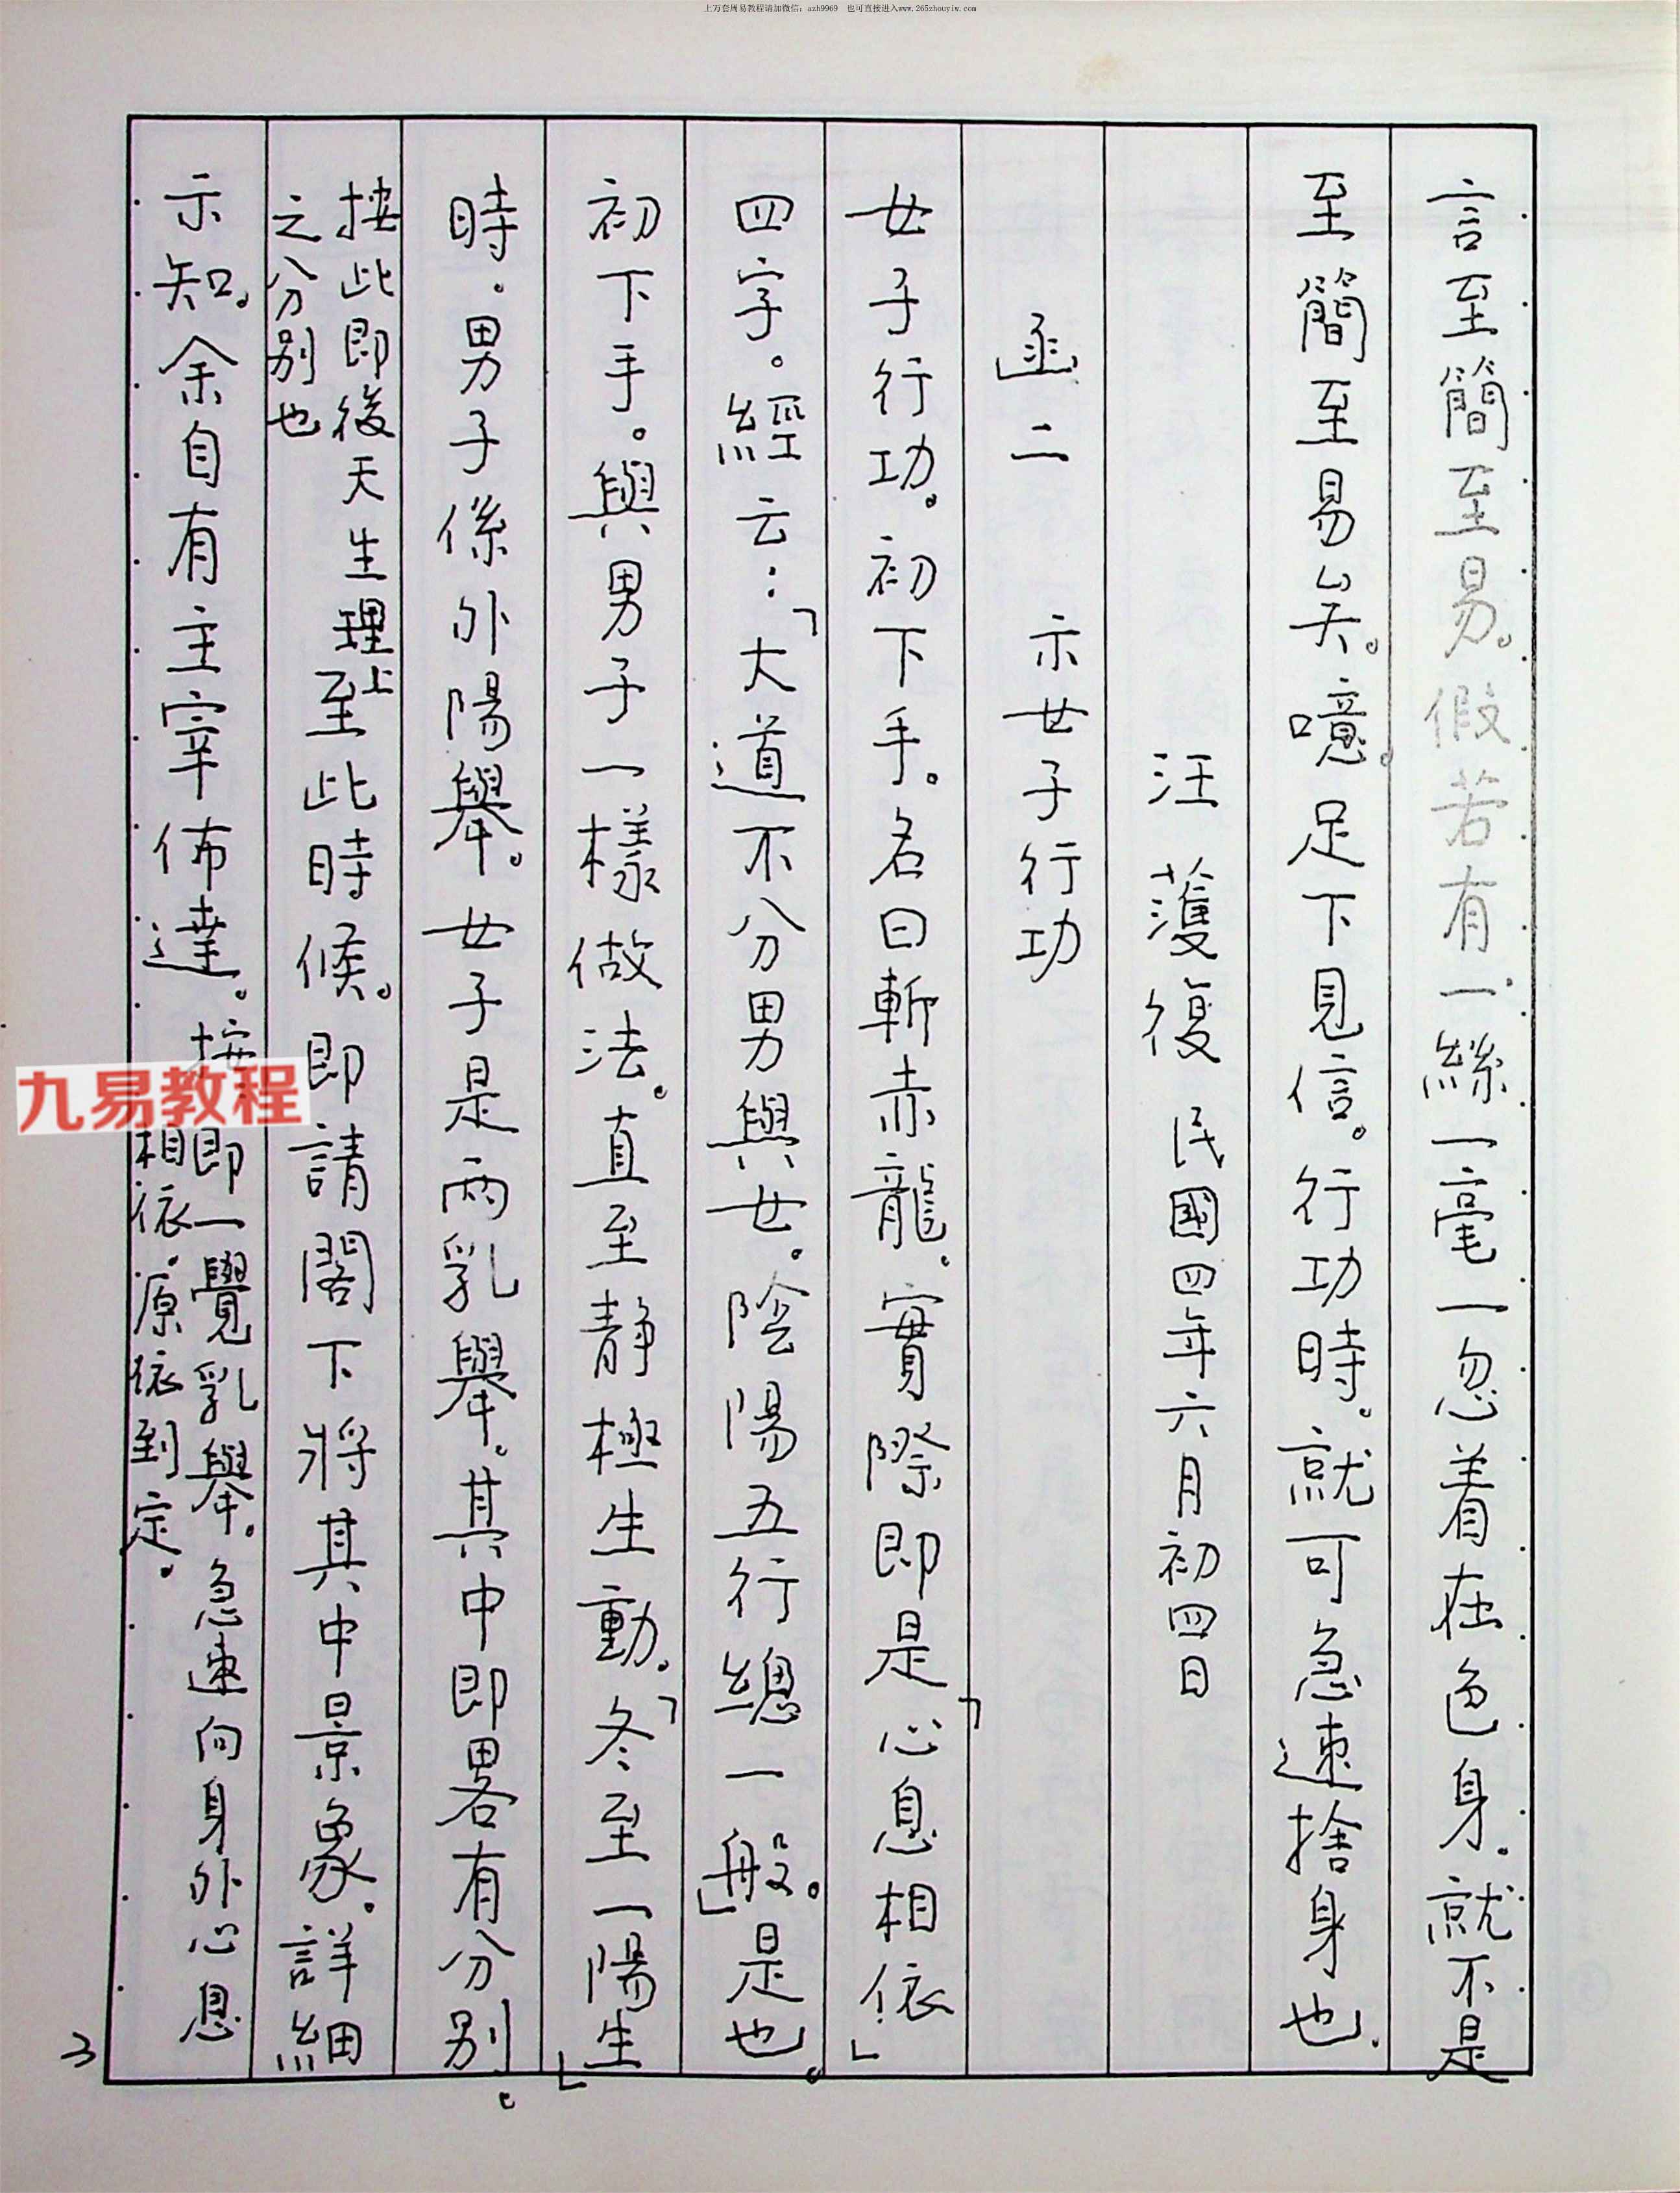 上万套周易教程请加微信：azh9969　也可直接进入www.265zhouyiw.com
言至簡至易。假若有一絲一毫一忽着在色身。就不是
至簡至易矣。噫。足下見信。行功時。就可急速捨身也。
汪䕶復　民國四年六月初四日
函二　示女子行功
女子行功。初下手。名曰斬赤龍。實際即是「心息相依」
四字。經云：「大道不分男與女。陰陽五行總一般。」是也。
初下手。與男子一樣做法。直至静極生動。「冬至一陽生」
時。男子係外陽舉。女子是兩乳舉。其中即畧有分別。
按此即後天生理上
之分別也
至此時候。即請閣下將其中景象。詳細
示知。余自有主宰佈達。
按即一覺乳舉。急速向身外心息
相依。原依到定。
九易教程
3